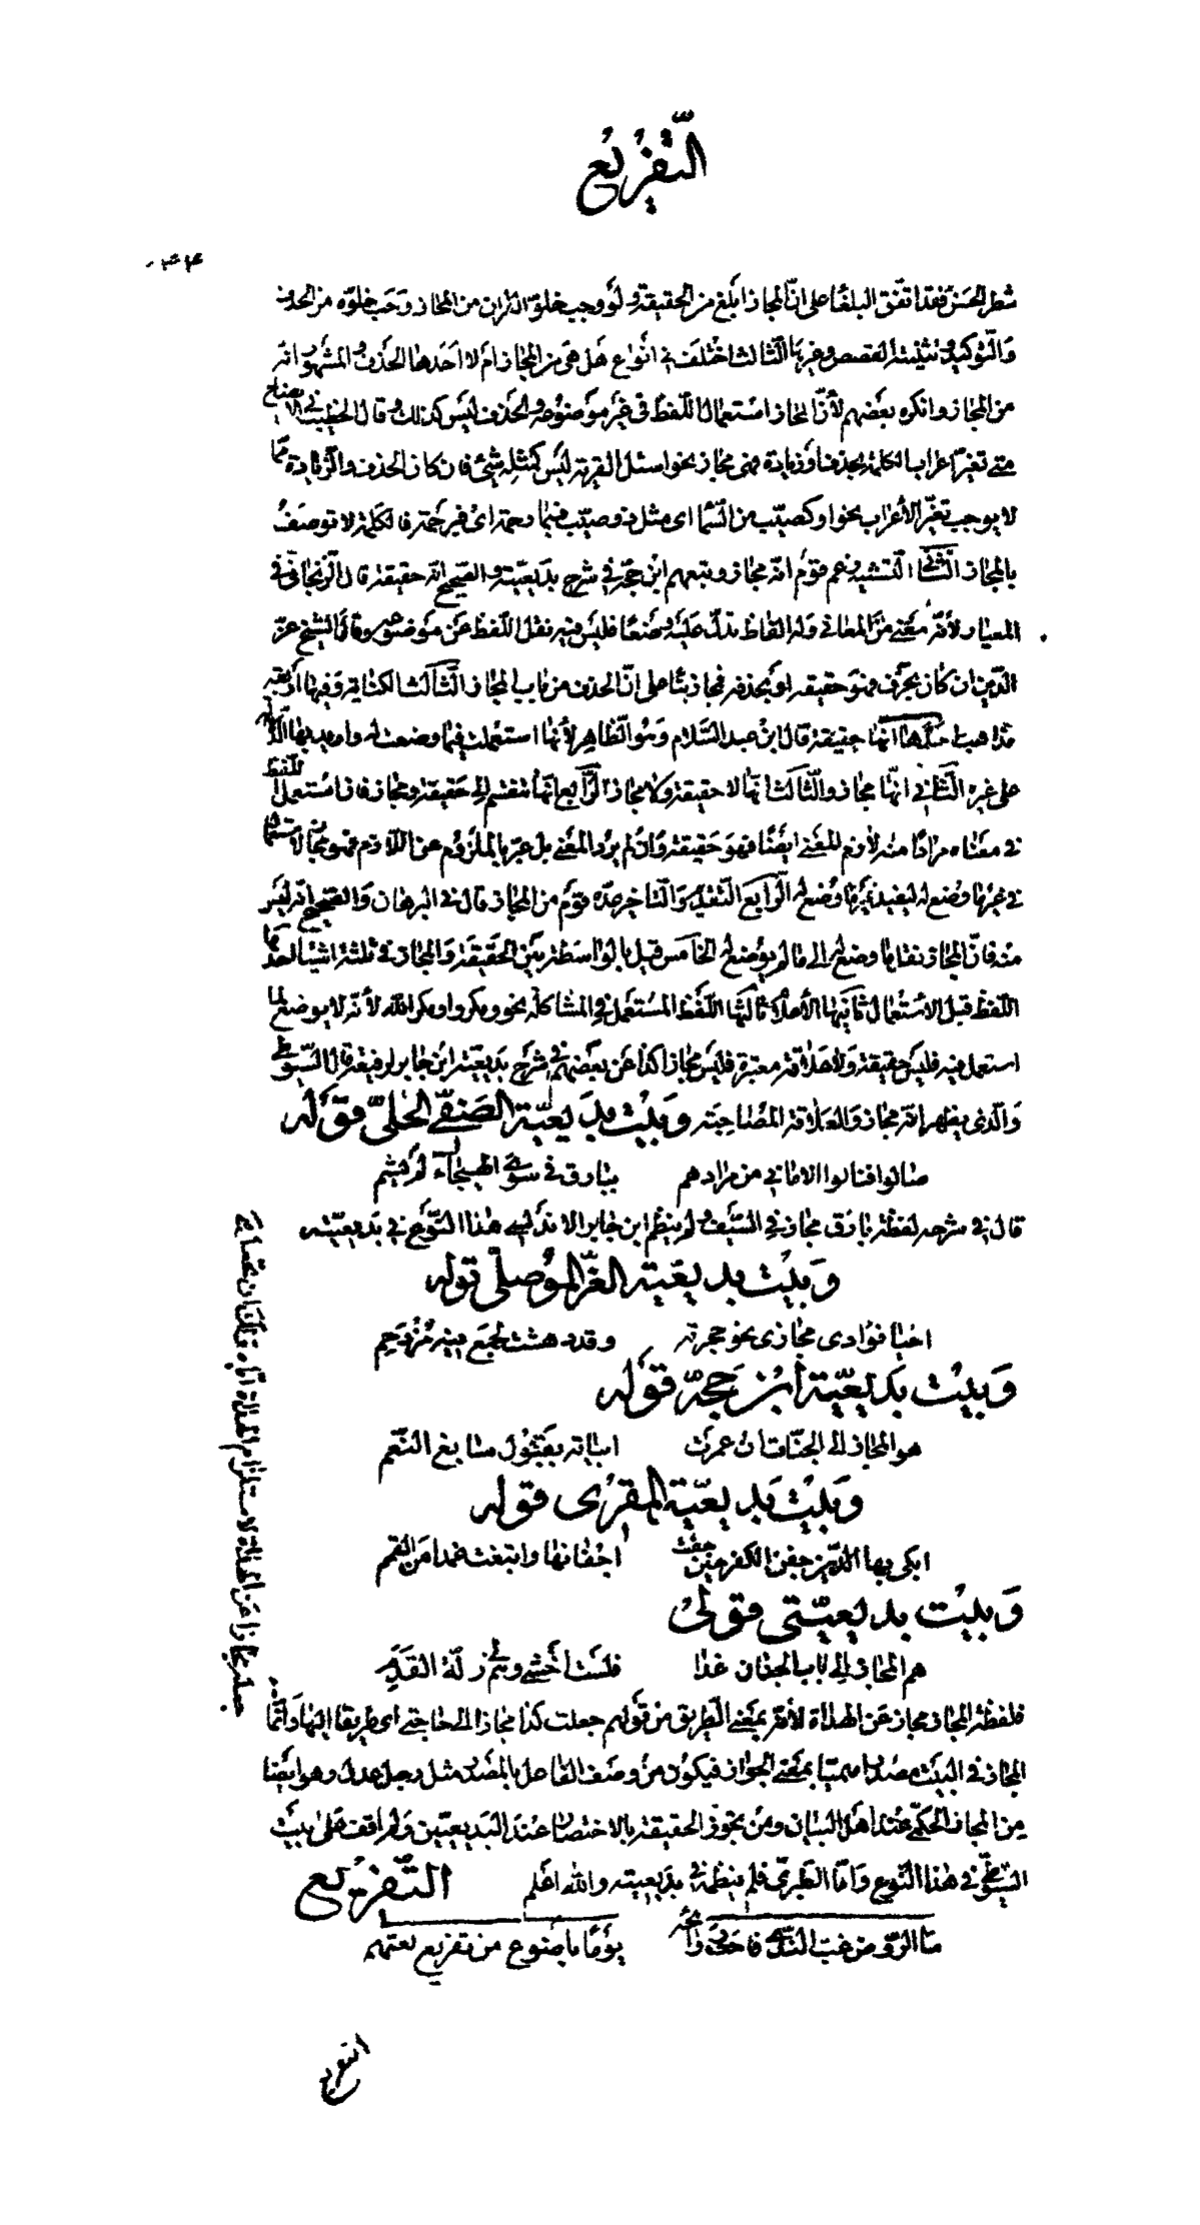 التفريع
شطر الحسن فقد اتفق البلغاء على ان المجاز ابلغ من الحقيقة ولو وجب خلو القران من المجاز وجب خلوه من الحذف
والتوكيد وتثنية القصص وغيرها الثالث اختلف في انواع هل هي من المجاز ام لا احدها الحذف والمشهور انه
من المجاز وانكره بعضهم لأن المجاز استعمال اللفظ في غير موضوعه والحذف ليس كذلك وقال الخطيب في الايضاح
متى تغير اعراب الكلمة بحذف او زيادة فهى مجاز نحو اسئل القرية ليس كمثله شئ فان كان الحذف والزيادة مما
لا يوجب تغير الأعراب نحو او كصيب من السما اى مثل ذوى صيب فبما رحمة اى فبرحمة فالكلمة لا توصف
بالمجاز الثاني التشبيه زعم قوم انه مجاز وتبعهم ابن حجة في شرح بديعيته والصحيح انه حقيقة قال الزنجاني في
المعيار لأنه معنى من المعاني وله الفاظ تدل عليه وضعا فليس فيه نقل اللفظ عن موضوعه وقال الشيخ عز
الدين ان كان بحرف فهو حقيقة او بحذفه فمجاز بناء على ان الحذف من باب المجاز الثالث الكناية وفيها اربعة
مذاهب احدها انها حقيقة قال ابن عبد السلام وهو الظاهر لأنها استعملت فيما وضعت له واريد بها الدلالة
على غيره الثاني انها مجاز والثالث انها لا حقيقة ولا مجاز الرابع انها تنقسم الى حقيقة ومجاز فان استعمل اللفظ
في معناه مرادا منه لازم المعنى ايضا فهو حقيقة وان لم يرد المعنى بل عبر بالملزوم عن اللازم فهو مجاز لاستعماله
في غير ما وضع له ليفيد غير ما وضع له الرابع التقديم والتاخير عده قوم من المجاز قال في البرهان والصحيح انه ليس
منه فان المجاز نقل ما وضع له الى ما لم يوضع له الخامس قيل بالواسطة بين الحقيقة والمجاز في ثلثة اشيا احدها
اللفظ قبل الاستعمال ثانيها الأعلام ثالثها اللفظ المستعمل في المشاكلة نحو ومكروا ومكر الله لأنه لا يوضع لما
استعمل فيه فليس حقيقة ولا علاقة معتبرة فليس مجازا كذا عن بعضهم في شرح بديعية ابن جابر لرفيقه قال السيوطي
والذى يظهر انه مجاز والعلاقة المصاحبة وبيت بديعية الصفي الحلي قوله
صالوا فنالوا الاماني من مرادهم ببارق في سوى الهيجاء لم يشم
قال في شرحه لفظة بارق مجاز في السيف ولم ينظم ابن جابر الاندلسي هذا النوع في بديعيته
وبيت بديعية العز الموصلي قوله
احيا فؤادى مجازى نحو حجرته وقد دهشت لجمع فيه مزدحم
وبيت بديعية ابن حجة قوله
هو المجاز الى الجنات ان عمرت ابياته بقبول سابغ النعم
وبيت بديعية المقرى قوله
ابكى بها الدين جفن الكفر حين جفت اجفانها وابتغت غمدا من القمم
وبيت بديعيتي قولي
هم المجاز الى باب الجنان غدا فلست اخشى وهم في زلة القدم
فلفظة المجاز مجاز عن الهداة لأنه بمعنى الطريق من قولهم جعلت كذا مجازا الى حاجتي اى طريقا اليها وانما
المجاز في البيت مصدرا ميميا بمعنى الجواز فيكون من وصف الفاعل بالمصدر مثل رجل عدل وهو ايضا
من المجاز الحكمي عند اهل البيان ومن تجوز الحقيقة بالاختصار عند البديعيين ولم اقف على بيت
السيوطي في هذا النوع واما الطبرى فلم ينظمه في بديعيته والله اعلم التفريع
ما الروض غب الندى فاحت روائحه يوما باضوع من تفريع نعتهم